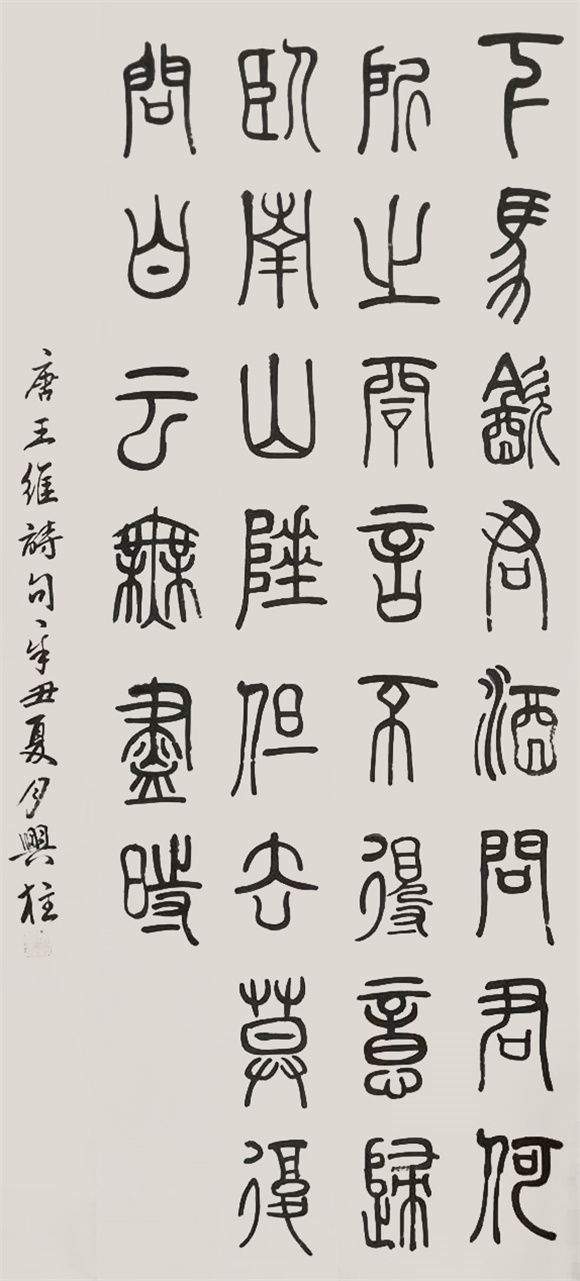 下馬飲君酒問君何
所之君言不得意歸
臥南山陲但去莫復
問白云無盡時
唐王維詩句辛丑夏月興柱